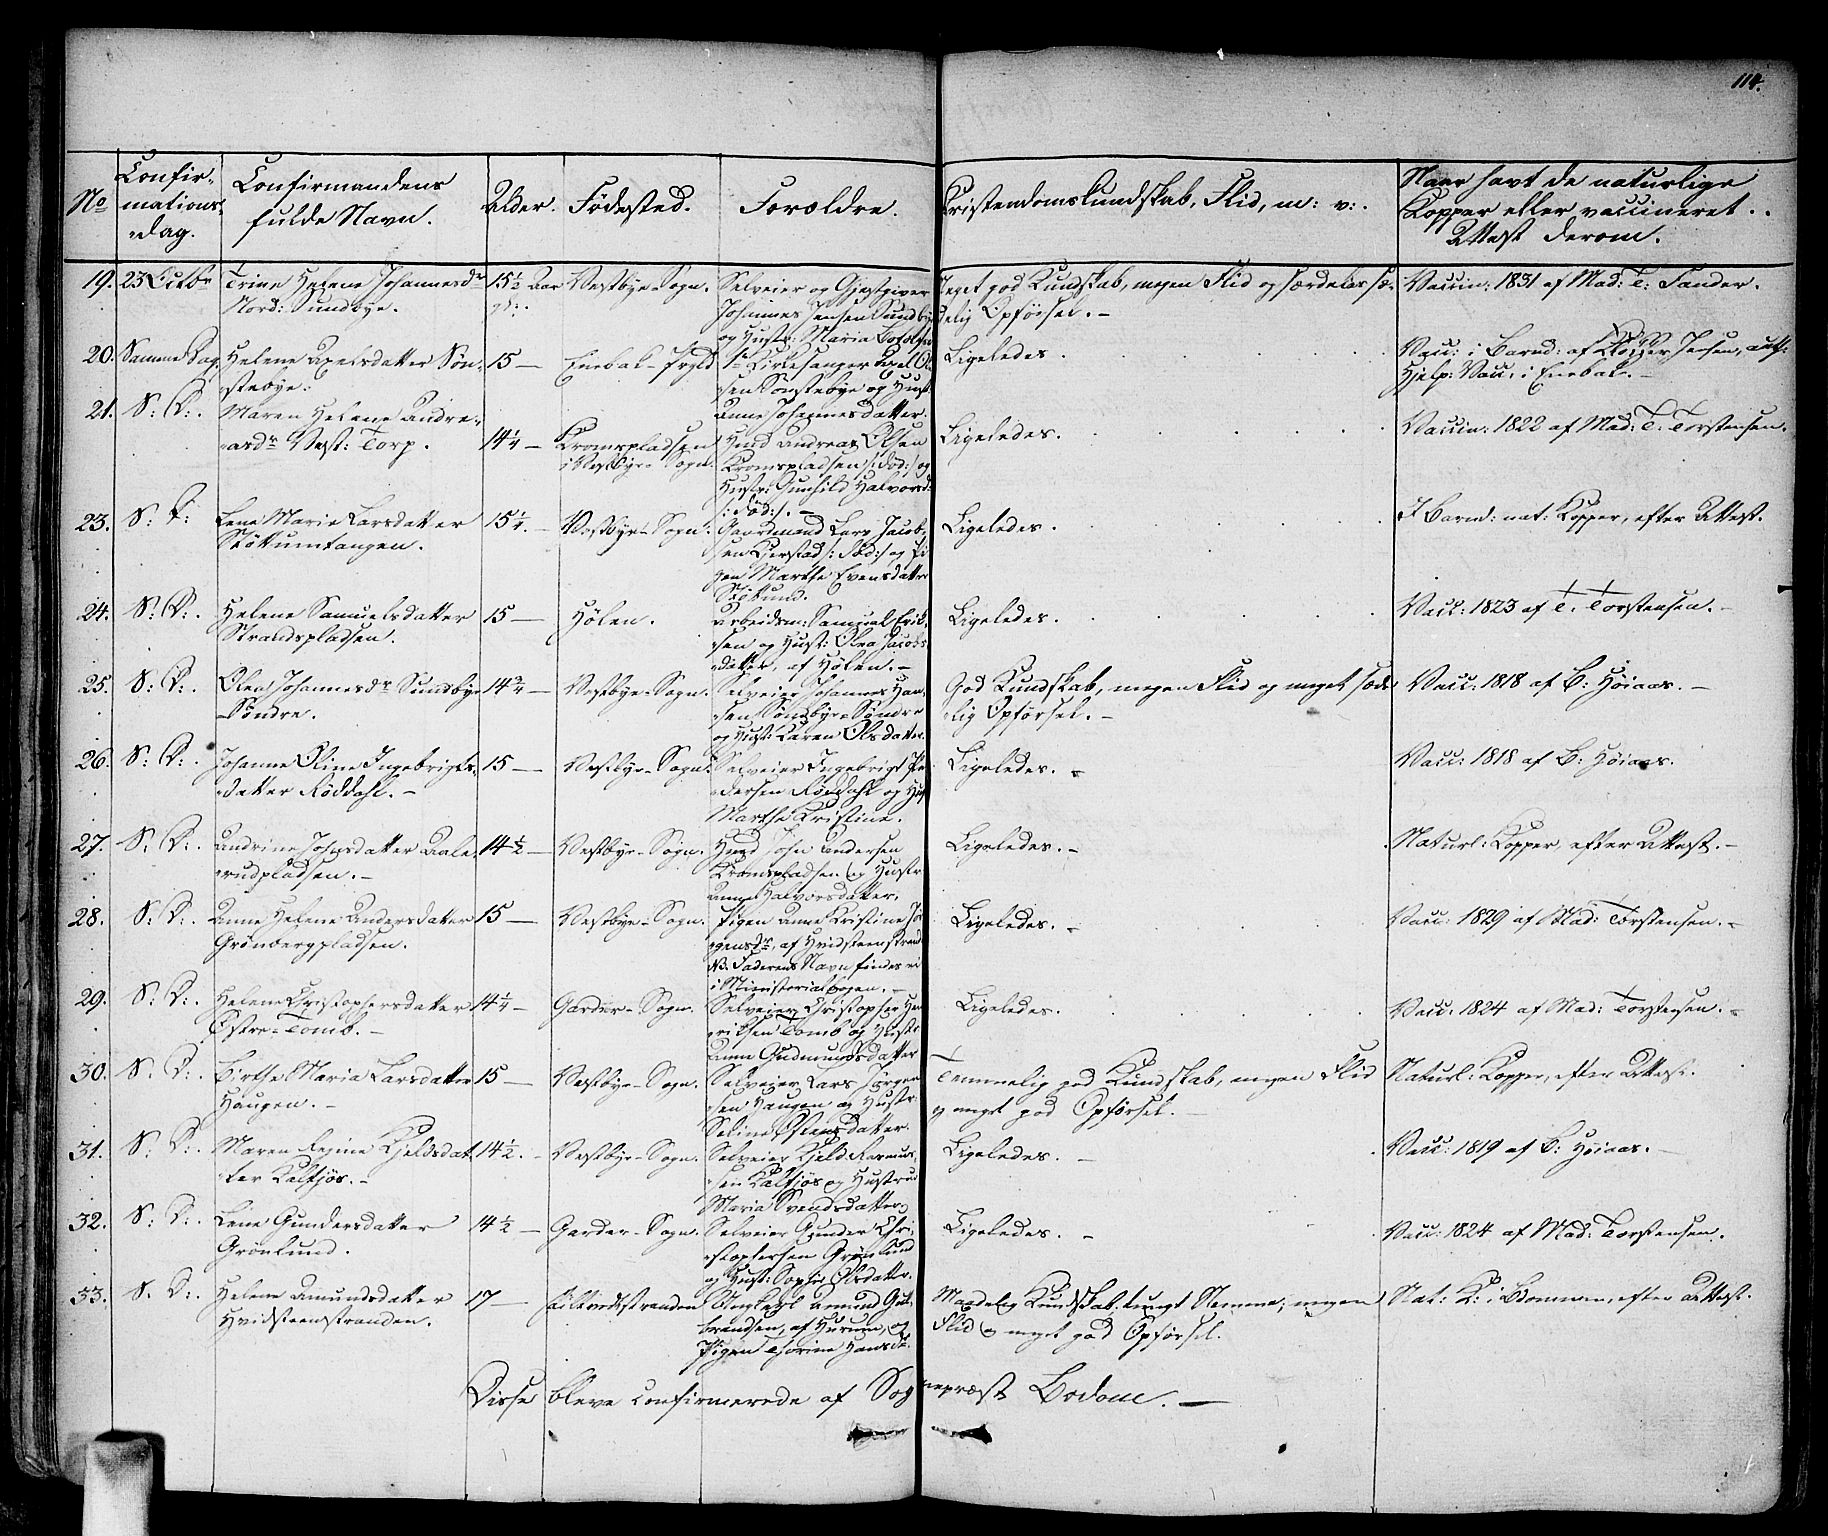 114.
No
Confir-
mations-
dag.
Confirmandens
fulde Navn.
Alder.
Fødested.
Forældre.
Kristendomskundskab, Flid, m: v:.
Naar havt de naturlige
Kopper eller vaccineret.
Attest derom.
19. 23 Octbr
Trine Helene Johannesdr
Nord: Sundbye.
15½ Aar
gl:.
Vestbye-Sogn.
Selveier og Gjæstgiver
Johannes Jensen Sundbye
og Hustr: Maria
Meget god Kundskab, megen Flid og særdeles sæ-
delig Opførsel. -
Vaccin: 1831 af Mad: T: Sander.
20. Samme Dag.
Helene Axelsdatter Søn-
stebye.
15 —
Enebak-Prgld
Kirkesanger Axel Ol-
sen Sønstebye og Hust:
Anne Johannesdatter.
Ligeledes.
Vacc: i Barnd: af Jensen, autt:
Hjelp: Vacc. i Enebak. -
21. S: D:.
Maren Helene Andre-
asdr Vest: Torp.
14¼ —
Kromspladsen
i Vestbye-Sogn.
Husmd Andreas Olsen
Kromspladsen /: død:/ og
Hustr: Gunhild Halvorsd:
/: død:/. -
Ligeledes.
Vaccin: 1822 af Mad: T: Torstensen.
23. S: D:
Lene Marie Larsdatter
Støttumtangen.
15¼. —
Vestbye-Sogn.
Gaardmand Lars Jacob-
sen Kjerstad /: død:/ og Pi-
gen Marthe Evensdatter
Støttum.
Ligeledes.
I Barnd: nat: Kopper, efter Attest.
24. S: D:.
Helene Samuelsdatter
Strandspladsen.
15 —
Hølen.
Arbeidsm: Samuel Erik-
sen og Hust: Olea Jacobs-
datter, af Hølen. -
Ligeledes.
Vacc: 1823 af T. Torstensen. -
25. S: D:.
Olea Johannesdr Sundbye
Søndre.
14¾ —
Vestbye-Sogn.
Selveier Johannes Han-
sen Sundbye Søndre
og Hust: Karen Olsdatter.
God Kundskab, megen Flid og meget sæde-
lig Opførsel. -
Vacc: 1818 af B: Høiaas. -
26. S: D:.
Johanne Oline Ingebrigts-
datter Røddahl. -
15 —
Vestbye-Sogn.
Selveier Ingebrigt Pe-
dersen Røddahl og Hust
Marthe Kristine.
Ligeledes. -
Vacc: 1818 af B: Høiaas.
27. S: D:.
Andrine Johnsdatter Aale-
rudpladsen. -
14½ —
Vestbye-Sogn.
Husmd John Andersen
Kromspladsen og Hustr
Anne Halvorsdatter.
Ligeledes. -
Naturl: Kopper, efter Attest. -
28. S: D:.
Anne Helene Andersdatter
Grønbergpladsen.
15 —
Vestbye-Sogn.
Pigen Anne Kristine Jør-
gensdr, af Hvidsteenstrand
NB. Faderens Navn findes ei
i Ministerialbogen. -
Ligeledes. -
Vacc: 1829 af Mad: Torstensen. -
29. S: D:.
Helene Christophersdatter
Østre-Tomb. -
14¼ —
Garder-Sogn.
Selveier Christopher Hen-
riksen Tomb og Hustr
Anne Gudmundsdatter
Ligeledes.
Vacc. 1824 af Mad: Torstensen. -
30. S. D:.
Birthe Maria Larsdatter
Haugen. -
15 —
Vestbye-Sogn.
Selveier Lars Jørgen-
sen Haugen og Hustr.
Seline Østensdatter.
Temmelig god Kundskab, megen Flid
og meget god Opførsel. —
Naturl: Kopper, efter Attest.
31. S. D:.
Maren Regine Kjeldsdat-
ter Kaltjøs. -
14½. -
Vestbye-Sogn.
Selveier Kjeld Rasmus-
sen Kaltjøs og Hustrue
Maria Svendsdatter.
Ligeledes. -
Vacc: 1819 af B: Høiaas. -
32. S: D:.
Lene Gundersdatter
Grønlund.
14½ —
Garder-Sogn.
Selveier Gunder Chri-
stophersen Grønlund
og Hust: Sophie Olsdatter.
Ligeledes. -
Vacc: 1824 af Mad: Torstensen.
33. S. D:.
Helene Amundsdatter
Hvidsteenstranden.
17 —
Filtvedtstranden
Ungkarl Amund Gul-
brandsen, af Hurum, og
Pigen Thorine Hansdr.
Maadelig Kundskab, tungt Nemme, megen
Flid og meget god Opførsel.
Nat: K: i Barndommen, efter Attest.
Disse bleve confirmerede af Sognepræst Bodom. —